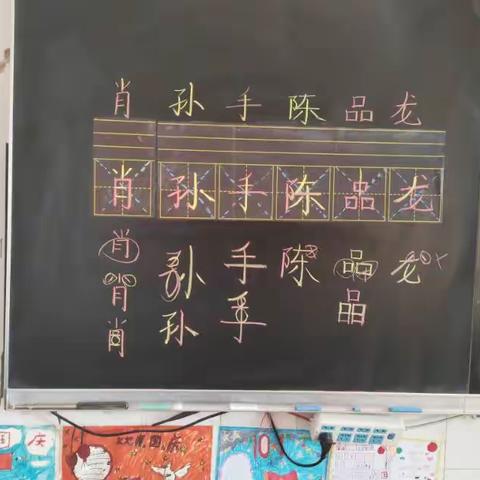 肖 孙 手 陈 品 龙
肖 孙 手 陈 品 龙
肖 孙 手 陈 品 龙
肖 孙 手 品
肖
国 庆
10